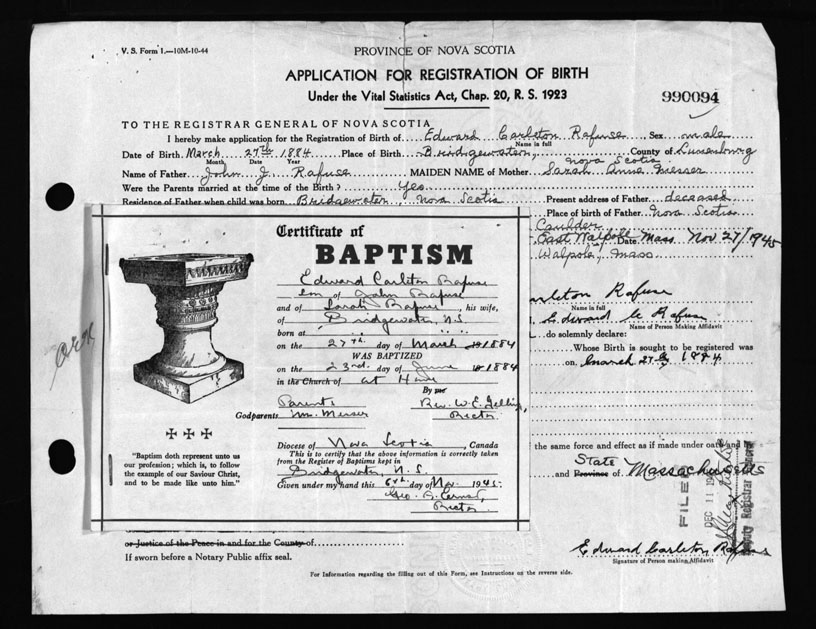 V. S. Form 1.—10M-10-44
PROVINCE OF NOVA SCOTIA
APPLICATION FOR REGISTRATION OF BIRTH
Under the Vital Statistics Act, Chap. 20, R. S. 1923
990094
TO THE REGISTRAR GENERAL OF NOVA SCOTIA
I hereby make application for the Registration of Birth of Edward Carleton Rafuse Sex male
Name in full
Date of Birth March 27th 1884 Place of Birth Bridgewater, Nova Scotia County of Lunenburg
Month Date Year
Name of Father John J. Rafuse MAIDEN NAME of Mother Sarah Anne Messer
Were the Parents married at the time of the Birth? Yes Present address of Father deceased
Residence of Father when child was born Bridgewater, Nova Scotia Place of birth of Father Nova Scotia
East Walpole Mass Date Nov 27/1945
Walpole, Mass
Carleton Rafuse
Name in full
Edward C Rafuse
Name of Person Making Affidavit
do solemnly declare:
Whose Birth is sought to be registered was
on March 27th 1884
the same force and effect as if made under oath and
State
and Province of Massachusetts
FILED
DEC 11
Deputy Registrar General
Certificate of
BAPTISM
Edward Carleton Rafuse
son of John Rafuse
and of Sarah Rafuse, his wife,
of Bridgewater N.S.
born at
on the 27th. day of March 1884
WAS BAPTIZED
on the 23rd. day of June 1884
in the Church of at Home
By me
Parents
Rev. W. E. Gelling
Godparents Mr. Messer
Rector
Diocese of Nova Scotia, Canada
This is to certify that the above information is correctly taken
from the Register of Baptisms kept in
Bridgewater, N.S.
Given under my hand this 6th. day of Nov. 1945
Rector
"Baptism doth represent unto us
our profession; which is, to follow
the example of our Saviour Christ,
and to be made like unto him."
or Justice of the Peace in and for the County of
If sworn before a Notary Public affix seal.
Edward Carleton Rafuse
Signature of Person making Affidavit
For Information regarding the filling out of this Form, see Instructions on the reverse side.